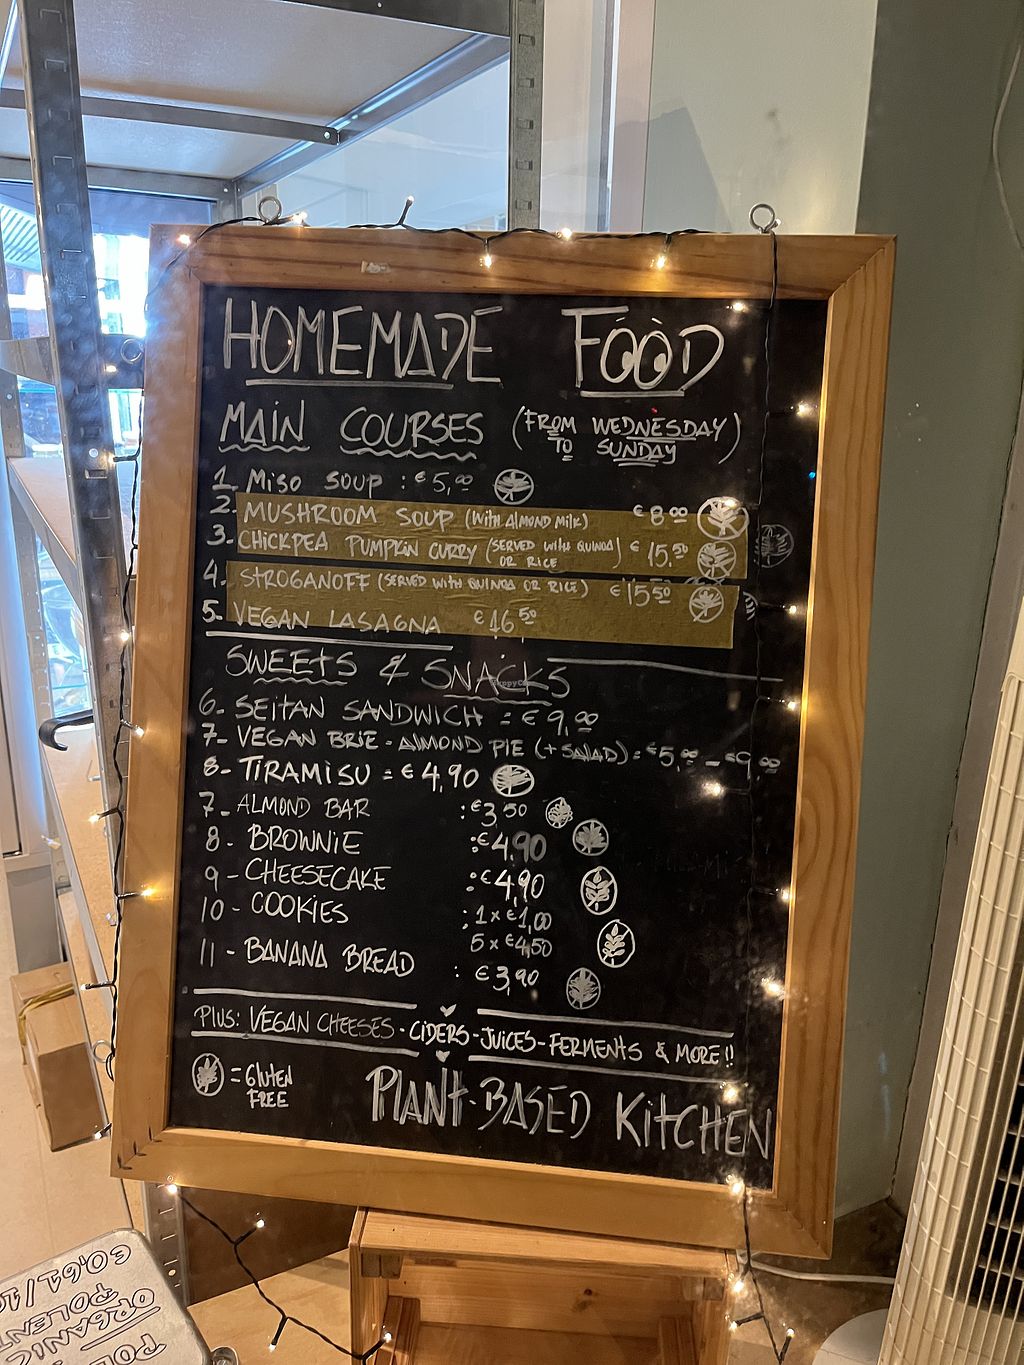 HOMEMADE FOOD
MAIN COURSES (FROM WEDNESDAY TO SUNDAY)
1. MISO SOUP : €5,00
2. MUSHROOM SOUP (WITH ALMOND MILK) €8 00
3. CHICKPEA PUMPKIN CURRY (SERVED WITH QUINOA OR RICE) €15.50
4. STROGANOFF (SERVED WITH QUINOA OR RICE) €15 50
5. VEGAN LASAGNA €16 50
SWEETS & SNACKS
6- SEITAN SANDWICH = €9,00
7- VEGAN BRIE - ALMOND PIE (+ SALAD) = €5,00 - €9,00
8- TIRAMISU = €4,90
7- ALMOND BAR : €3,50
8- BROWNIE : €4,90
9- CHEESECAKE : €4,90
10- COOKIES : 1 x €1,00
5 x €4,50
11- BANANA BREAD : €3,90
PLUS: VEGAN CHEESES - CIDERS - JUICES - FERMENTS & MORE!!
= GLUTEN FREE
PLANT-BASED KITCHEN
€0,61/10
ORGANIC
POLENT